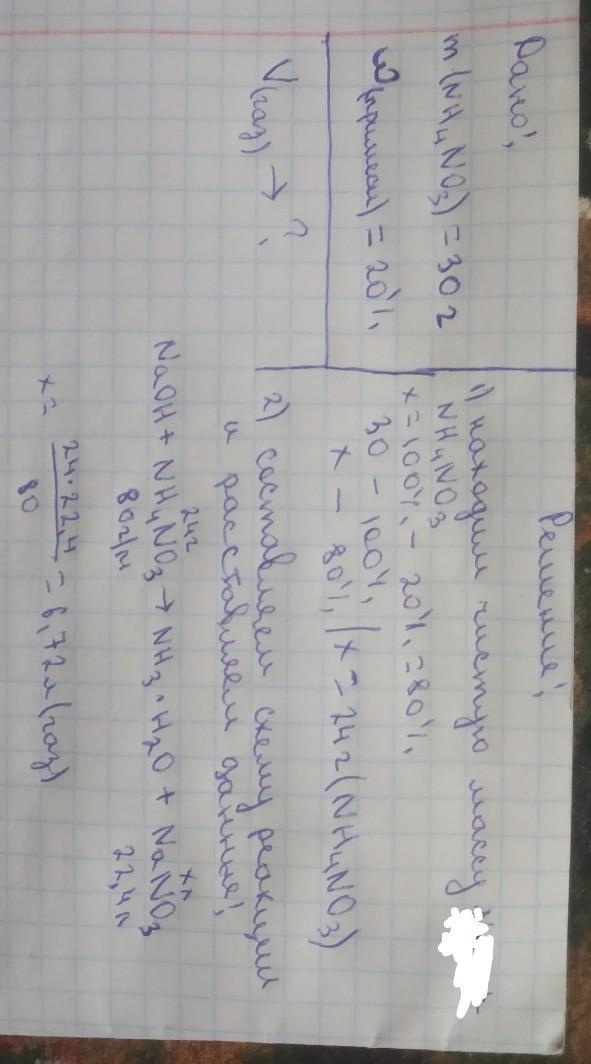 Дано:
m(NH4NO3) = 30 г
ω(примеси) = 20%
V(газ) → ?
Решение:
1) находим чистую массу
NH4NO3
x = 100% - 20% = 80%
30 - 100%
x - 80% / x = 24 г (NH4NO3)
2) составляем схему реакции
и расставляем данные:
24г xл
NaOH + NH4NO3 → NH3 · H2O + NaNO3
80г/м 22,4л
x = 24·22,4 / 80 = 6,72л (газ)